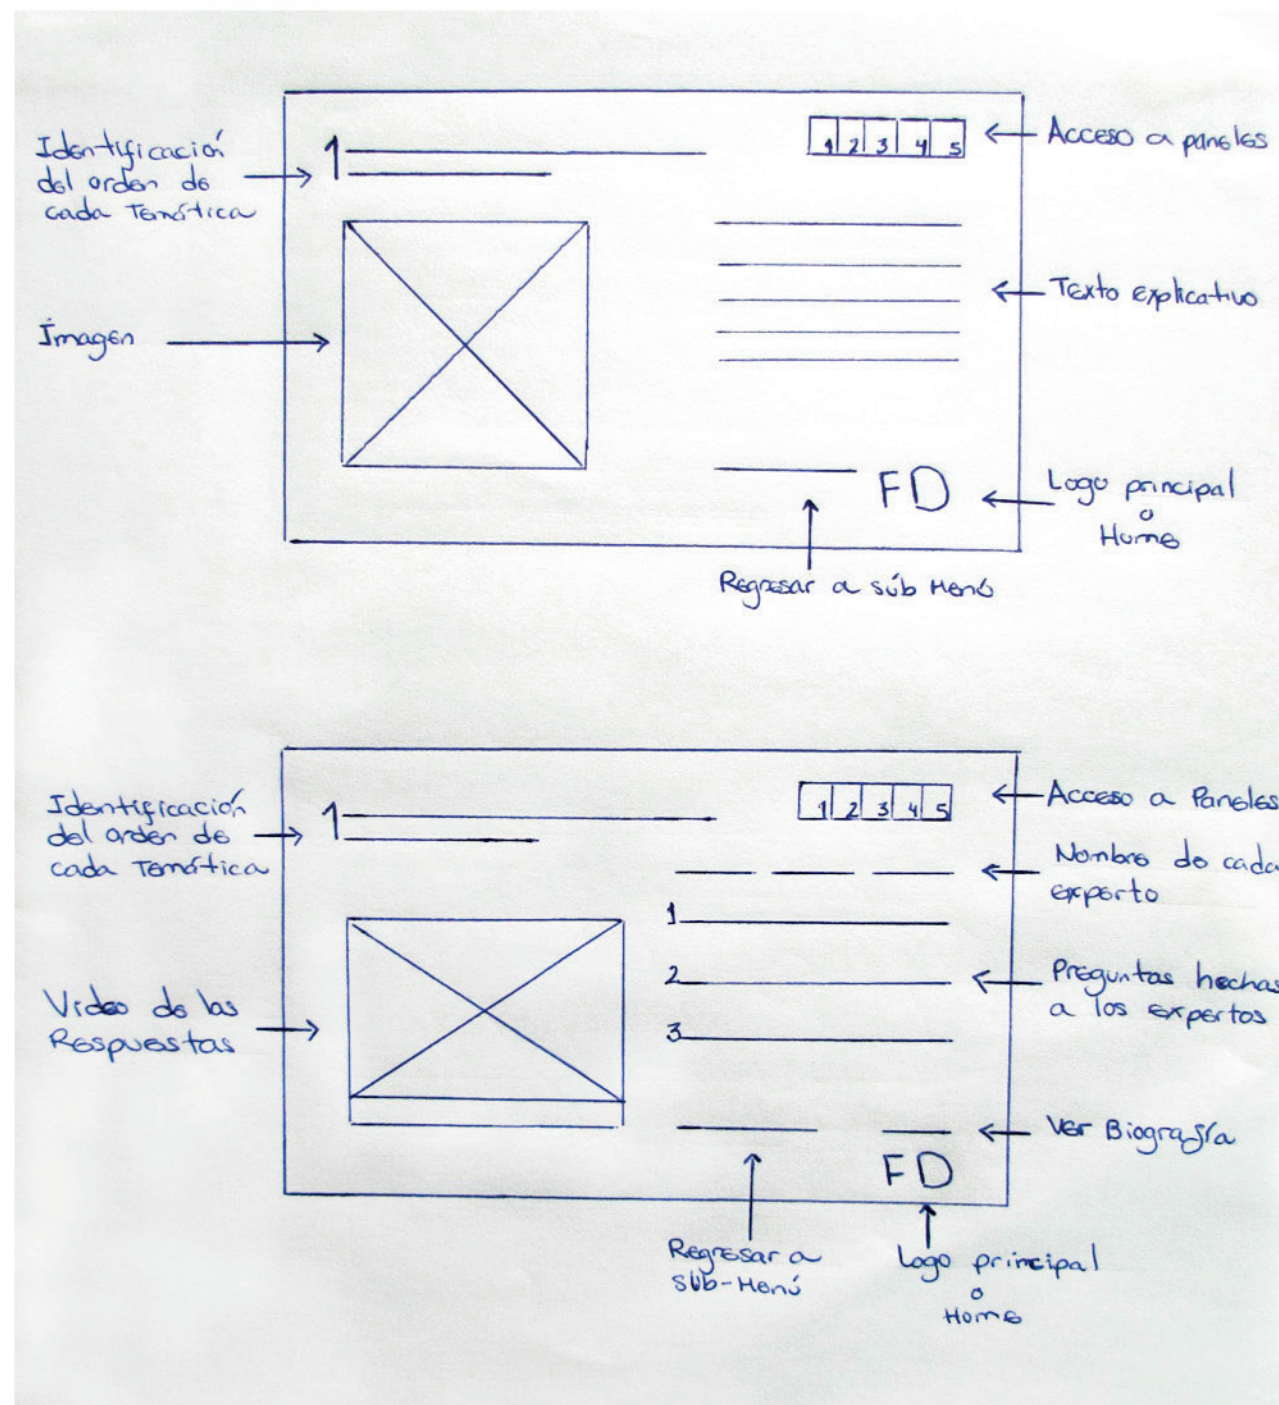 Identificación
del orden de
cada Temática
1
1 2 3 4 5
Acceso a paneles
Texto explicativo
Imagen
FD
Logo principal
o
Home
Regresar a súb Menú
Identificación
del orden de
cada Temática
1
1 2 3 4 5
Acceso a Paneles
Nombre de cada
experto
1
2
3
Preguntas hechas
a los expertos
Video de las
Respuestas
Ver Biografía
FD
Regresar a
sub-Menú
Logo principal
o
Home